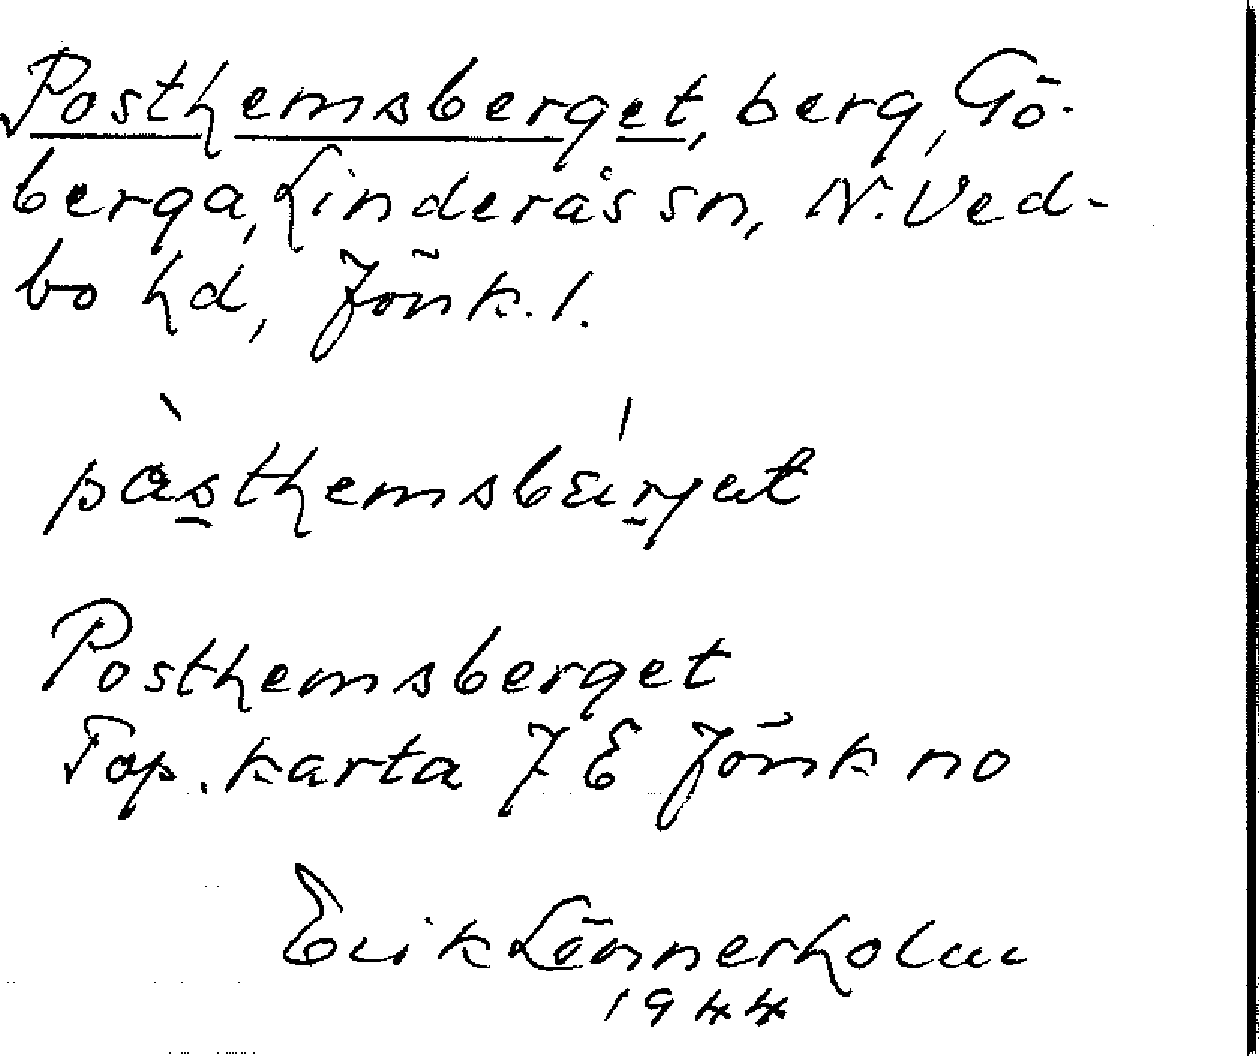 Posthemsberget, berg, Gö-
berga, Linderås sn, N. Ved-
bo hd, Jönk. l.
påsthemsbärjet
Posthemsberget
Top. karta 7 E Jönk no
Erik Lönnerholm
1944